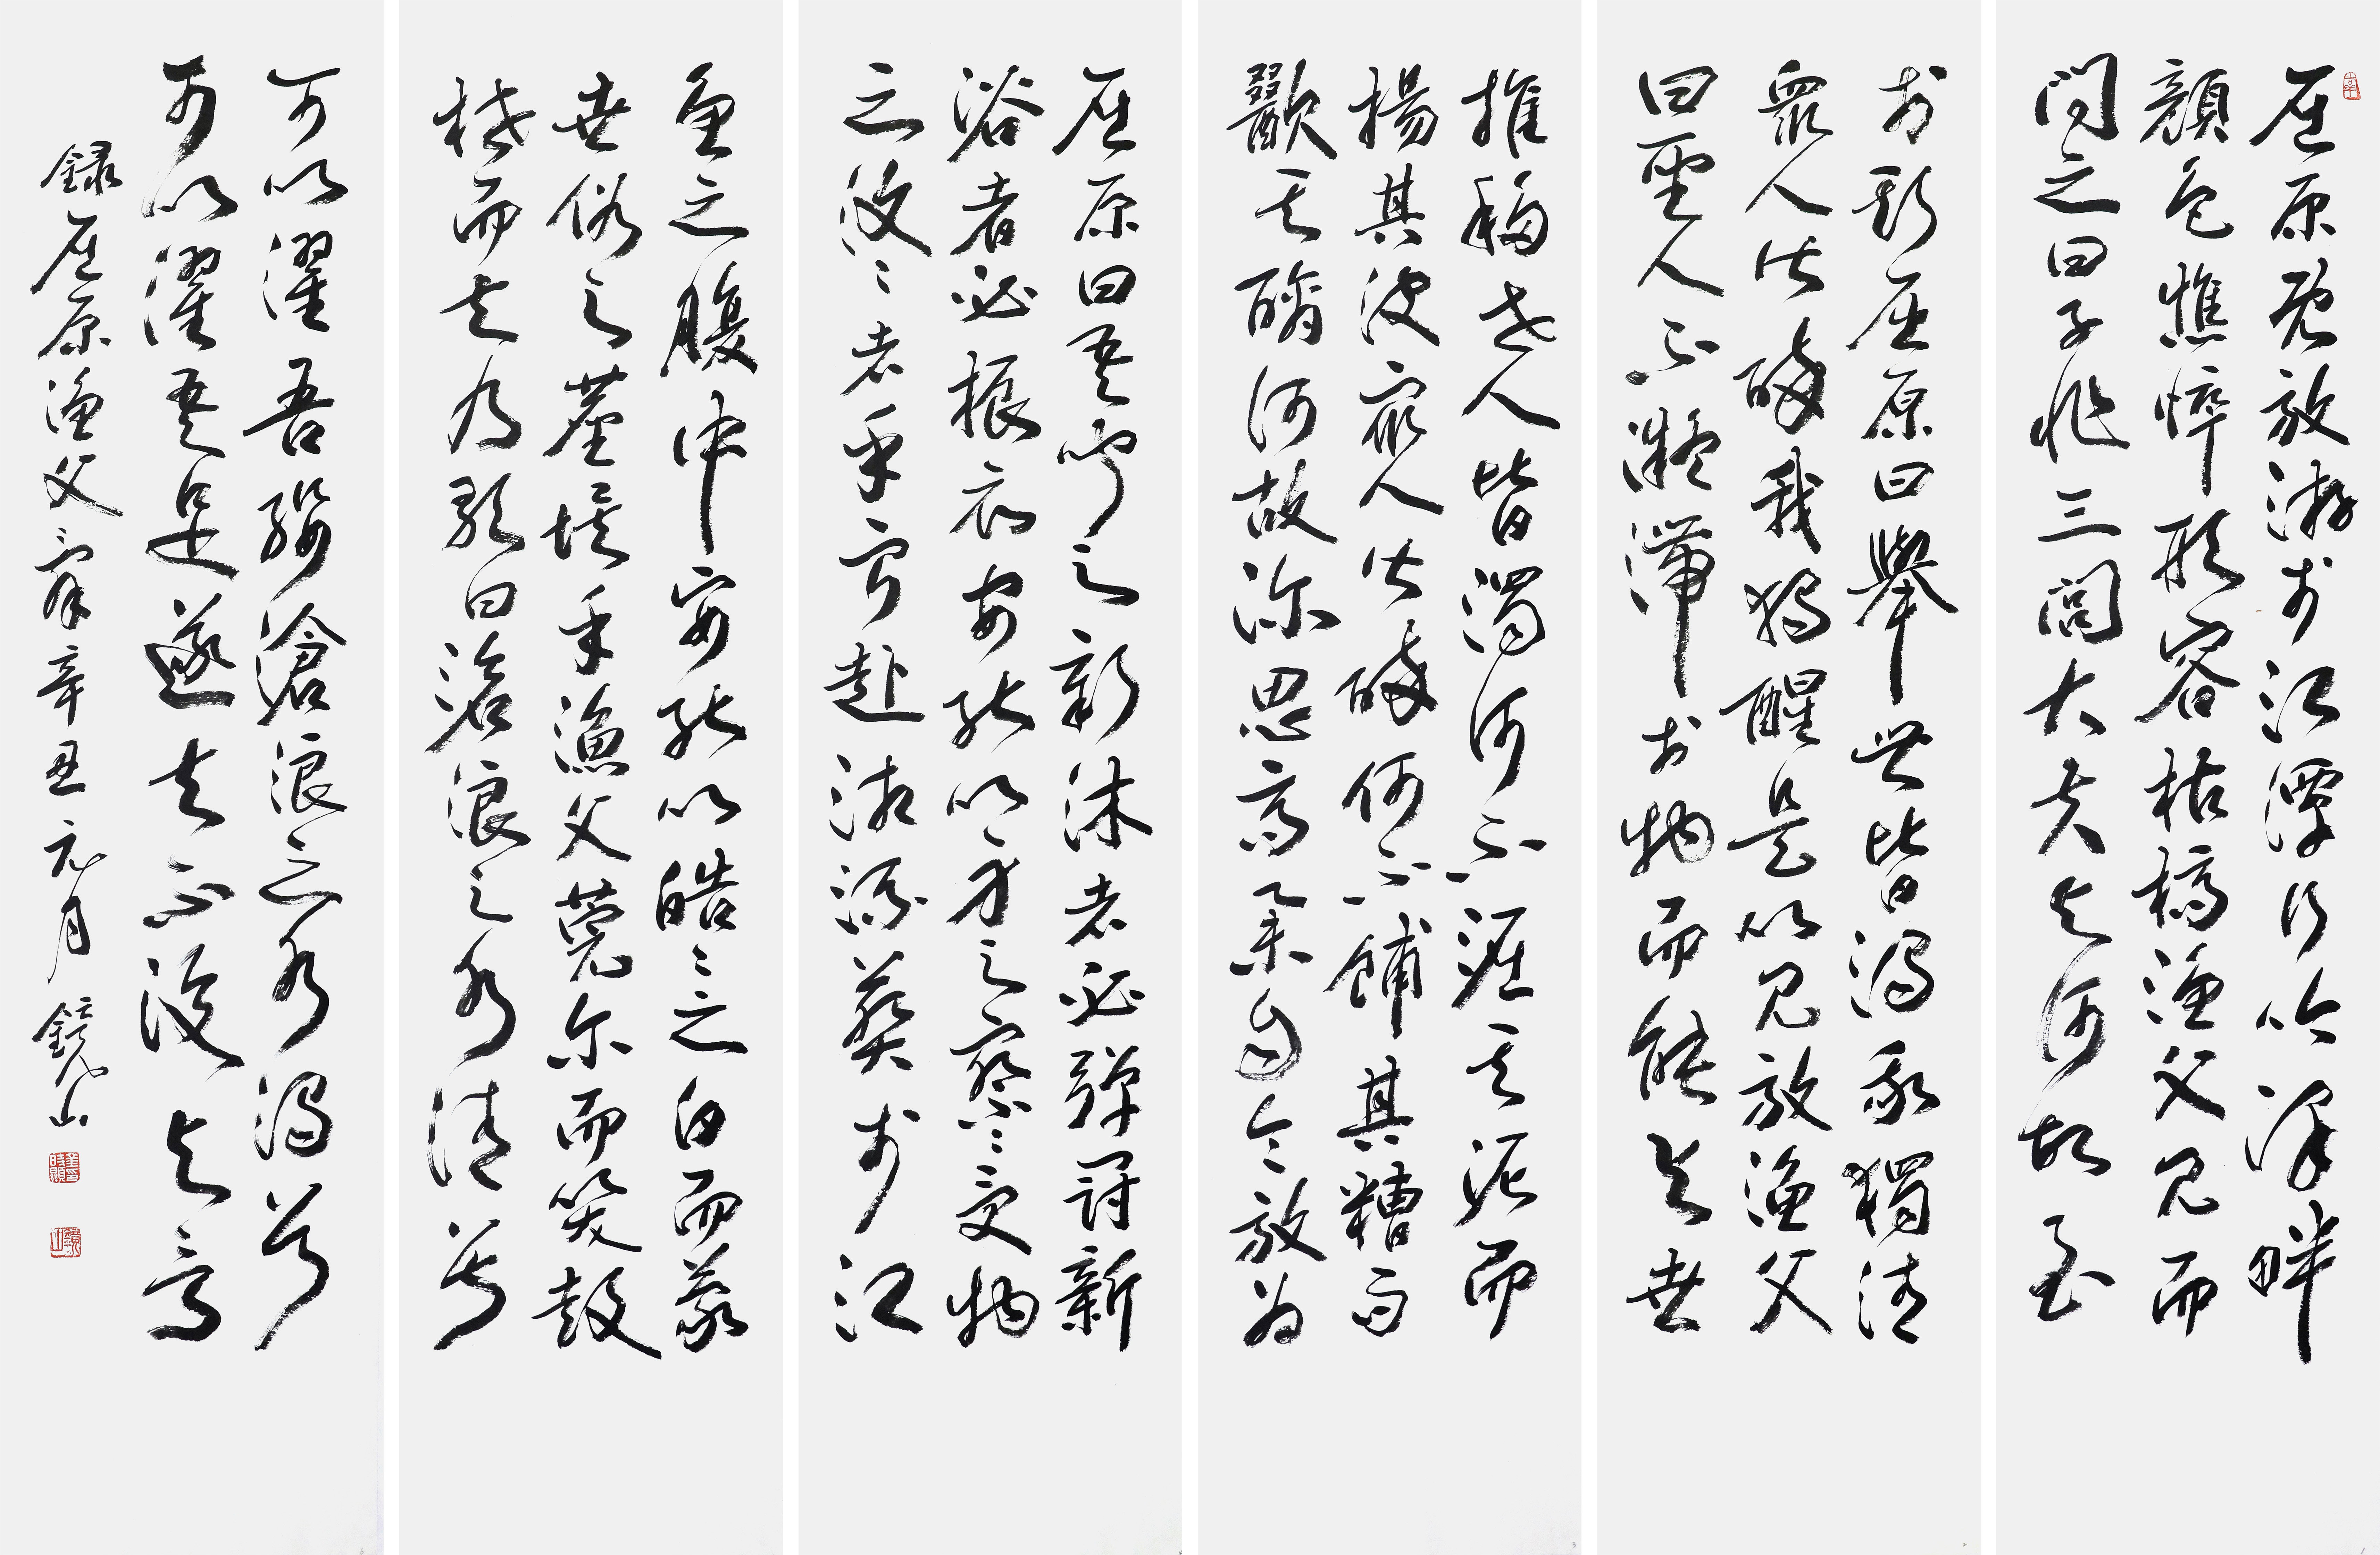 屈原既放游於江潭行吟澤畔
顏色憔悴形容枯槁漁父見而
問之曰子非三閭大夫與何故至
於斯屈原曰舉世皆濁我獨清
眾人皆醉我獨醒是以見放漁父
曰聖人不凝滯於物而能與世
推移世人皆濁何不淈其泥而
揚其波眾人皆醉何不餔其糟而
歠其醨何故深思高舉自令放為
屈原曰吾聞之新沐者必彈冠新
浴者必振衣安能以身之察〻受物
之汶〻者乎寧赴湘流葬於江
魚之腹中安能以皓〻之白而蒙
世俗之塵埃乎漁父莞尔而笑鼓
枻而去乃歌曰滄浪之水清兮
可以濯吾纓滄浪之水濁兮
可以濯吾足遂去不復與言
錄屈原漁父 辛丑元月鏡山
鏡山